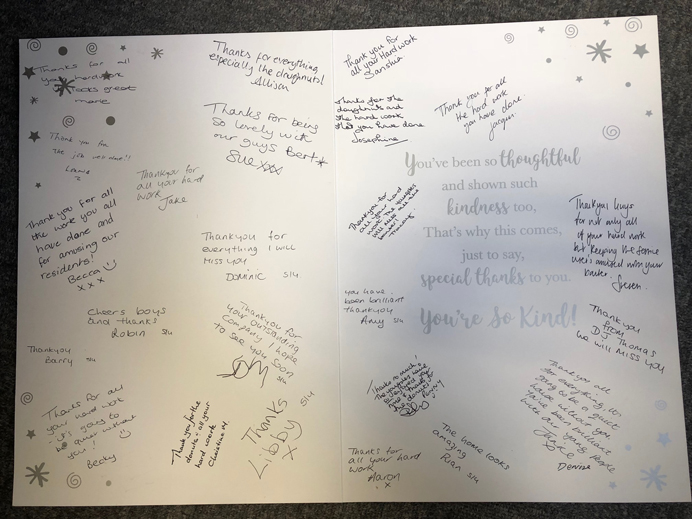 Thanks for all
your hard work
looks great
Thanks for everything
especially the doughnuts!
Allison
Thank you for
the job well done!!
Thankyou for
all your hard
work
Jake
Thanks for being
so lovely with
our guys Bert
Sue xxx
Thank you for all
the work you all
have done and
for amusing our
residents!
Becca
x x x
Thankyou for
everything I will
Miss you
Dominic S14
Cheers boys
and thanks
Robin S14
Thankyou
Barry S14
Thankyou for
your outstanding
Company I hope
to see you soon
S14
Thanks for all
your hard work
it's going to
be quiet without
you!
Becky
Thank you for the
donuts + all your
hard work
Christine
Thanks
Libby
x
S14
Thank you for
all your Hard work
Thanks for the
doughnuts and
the hard work
that you have done
Josephine
Thank you for all
the hard work
you have done
Jacqui
You've been so thoughtful
and shown such
kindness too,
That's why this comes,
just to say,
special thanks to you.
You're So Kind!
Thankyou for
all your hard
work
Thankyou guys
for not only all
of your hard work
but keeping the
with your
you have
been brilliant
thankyou
Amy S14
Thankyou
from
DJ Thomas
we will miss you
Thanks so much!
Thank you all
for everything, it's
going to be quiet
without you
been brilliant
with our young people
Denise
The home looks
amazing
Rian S14
Thanks for
all your hard
work
Aaron
x